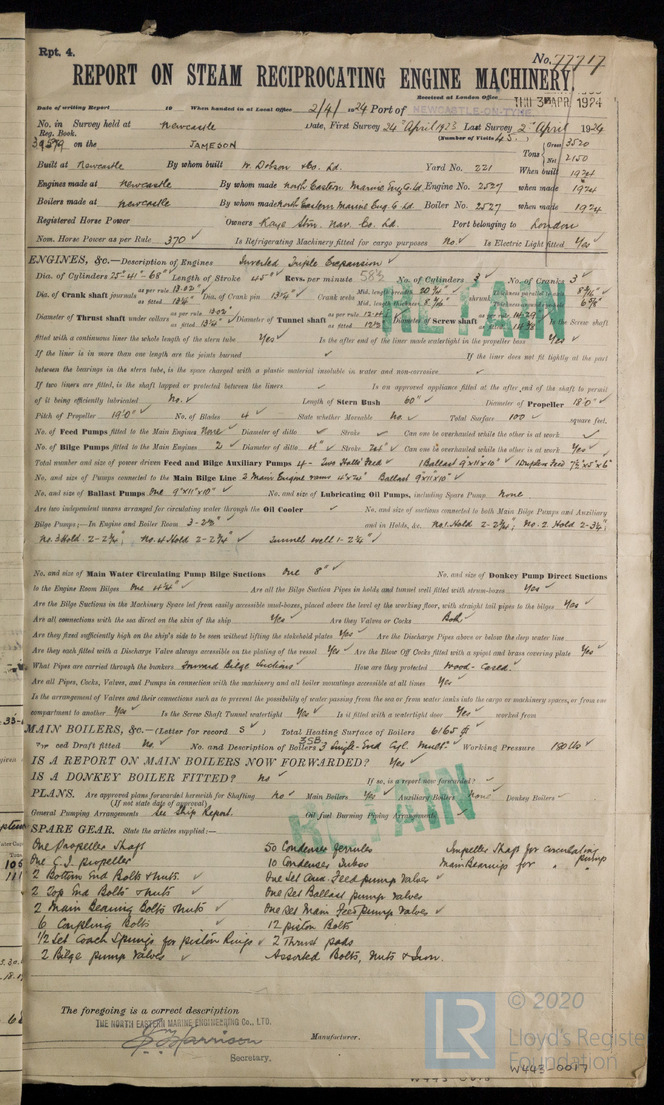 Rpt. 4.
No. 77717
REPORT ON STEAM RECIPROCATING ENGINE MACHINERY.
Received at London Office THU 3 APR 1924
Date of writing Report 19 When handed in at Local Office 2/4/1924 Port of NEWCASTLE-ON-TYNE
No. in Survey held at Newcastle Date, First Survey 24th April 1923 Last Survey 2nd April 1924
Reg. Book. (Number of Visits 45.)
39579 on the JAMESON Tons Gross 3520
Net 2150
Built at Newcastle By whom built W. Dobson & Co. Ld. Yard No. 221 When built 1924
Engines made at Newcastle By whom made North Eastern Marine Eng. Co. Ld. Engine No. 2527 when made 1924
Boilers made at Newcastle By whom made North Eastern Marine Eng. Co Ld Boiler No. 2527 when made 1924
Registered Horse Power Owners Kaye Stm. Nav. Co. Ld. Port belonging to London
Nom. Horse Power as per Rule 370 Is Refrigerating Machinery fitted for cargo purposes No. Is Electric Light fitted Yes
ENGINES, &c.—Description of Engines Inverted Triple Expansion
Dia. of Cylinders 25"-41"-68" Length of Stroke 45" Revs. per minute No. of Cylinders 3 No. of Cranks 3
Dia. of Crank shaft journals as per rule 13.02" as fitted 13¼" Dia. of Crank pin 13¼" Crank webs
Diameter of Thrust shaft under collars as per rule 13.02" as fitted 13¼" Diameter of Tunnel shaft as per rule as fitted Diameter of Screw shaft Is the Screw shaft
fitted with a continuous liner the whole length of the stern tube Yes Is the after end of the liner made watertight in the propeller boss Yes
If the liner is in more than one length are the joints burned If the liner does not fit tightly at the part
between the bearings in the stern tube, is the space charged with a plastic material insoluble in water and non-corrosive
If two liners are fitted, is the shaft lapped or protected between the liners Is an approved appliance fitted at the after end of the shaft to permit
of it being efficiently lubricated No. Length of Stern Bush 60" Diameter of Propeller 18'0"
Pitch of Propeller 19'0" No. of Blades 4 State whether Moveable No. Total Surface 100 square feet.
No. of Feed Pumps fitted to the Main Engines None Diameter of ditto Stroke Can one be overhauled while the other is at work
No. of Bilge Pumps fitted to the Main Engines 2 Diameter of ditto 4" Stroke Can one be overhauled while the other is at work Yes
Total number and size of power driven Feed and Bilge Auxiliary Pumps 4- Two Halls Feed 1 Ballast 9"x11"x10" 1 Duplex Feed 7½"x5"x6"
No. and size of Pumps connected to the Main Bilge Line 2 Main Engine rams Ballast 9"x11"x10"
No. and size of Ballast Pumps One 9"x11"x10" No. and size of Lubricating Oil Pumps, including Spare Pump None
Are two independent means arranged for circulating water through the Oil Cooler No. and size of suctions connected to both Main Bilge Pumps and Auxiliary
Bilge Pumps;—In Engine and Boiler Room and in Holds, &c. No 1. Hold No. 2. Hold
No. 3 Hold No. 4 Hold Tunnel well
No. and size of Main Water Circulating Pump Bilge Suctions One 8" No. and size of Donkey Pump Direct Suctions
to the Engine Room Bilges One Are all the Bilge Suction Pipes in holds and tunnel well fitted with strum-boxes Yes
Are the Bilge Suctions in the Machinery Space led from easily accessible mud-boxes, placed above the level of the working floor, with straight tail pipes to the bilges Yes
Are all connections with the sea direct on the skin of the ship Yes Are they Valves or Cocks Both
Are they fixed sufficiently high on the ship's side to be seen without lifting the stokehold plates Yes Are the Discharge Pipes above or below the deep water line
Are they each fitted with a Discharge Valve always accessible on the plating of the vessel Yes Are the Blow Off Cocks fitted with a spigot and brass covering plate Yes
What Pipes are carried through the bunkers Forward Bilge Suctions How are they protected Wood-Cased
Are all Pipes, Cocks, Valves, and Pumps in connection with the machinery and all boiler mountings accessible at all times Yes
Is the arrangement of Valves and their connections such as to prevent the possibility of water passing from the sea or from water tanks into the cargo or machinery spaces, or from one
compartment to another Yes Is the Screw Shaft Tunnel watertight Yes Is it fitted with a watertight door Yes worked from
MAIN BOILERS, &c.—(Letter for record S) Total Heating Surface of Boilers 6165
Forced Draft fitted No No. and Description of Boilers 3SB 3 Single-End Cyl. Mult. Working Pressure 180 lbs
IS A REPORT ON MAIN BOILERS NOW FORWARDED? Yes
IS A DONKEY BOILER FITTED? No If so, is a report now forwarded?
PLANS. Are approved plans forwarded herewith for Shafting No Main Boilers Yes Auxiliary Boilers None Donkey Boilers
(If not state date of approval)
General Pumping Arrangements See Ship Report. Oil fuel Burning Piping Arrangements
RETAIN
RETAIN
SPARE GEAR. State the articles supplied:—
One Propeller Shaft 50 Condenser ferrules Impeller Shaft for circulating pump
One C.I. Propeller 10 Condenser Tubes Main Bearings for " "
2 Bottom End Bolts & nuts One Set Aux. Feed pump Valves
2 Top End Bolts & nuts One Set Ballast pump Valves
2 Main Bearing Bolts & nuts One Set Main Feed pump Valves
6 Coupling Bolts 12 piston Bolts
½ Set Coach Springs for piston Rings 2 Thrust pads
2 Bilge pump Valves Assorted Bolts, Nuts & Iron.
The foregoing is a correct description
THE NORTH EASTERN MARINE ENGINEERING Co., LTD.
Harrison Manufacturer.
Secretary.
LR © 2020
Lloyd's Register
Foundation
W443-0017